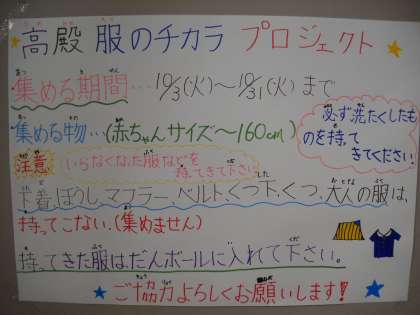 高殿 服のチカラ プロジェクト
集める期間…10/3(火)〜10/31(火)まで
集める物…(赤ちゃんサイズ〜160cm)
必ず洗たくしたも
のを持って
きてください。
注意
いらなくなった服などを
持てきて下さい
下着、ぼうし、マフラー、ベルト、くつ下、くつ、大人の服は、
持ってこない。(集めません)
持ってきた服は、だんボールに入れて下さい。
ご協力よろしくお願いします!